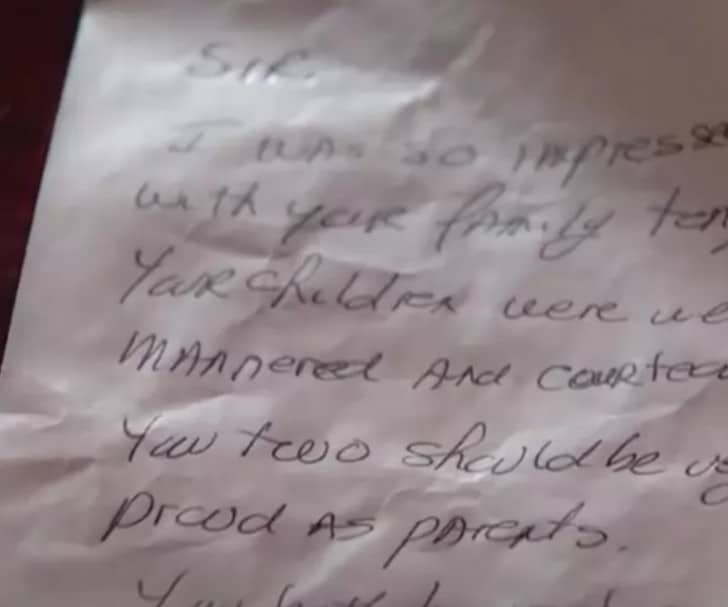 Sir.
I was so impresse
with your family ton
Your children were we
mannered And courteou
You two should be ve
proud As parents.